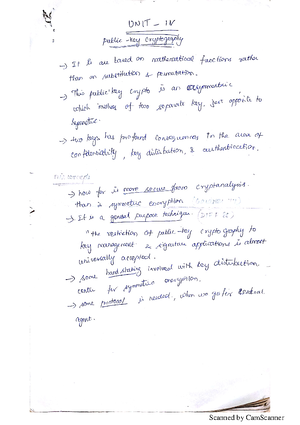 UNIT - IV
Public - Key Cryptography
→ It is are based on mathematical functions rather
than on substitution & permutation.
→ This public key crypto is an asymmetric
which of two separate key, just opposite to
Symmetric.
→ two keys has profound consequences in the area of
confidentiality, key distribution, & authentication.
→ how far is more secure from cryptanalysis
than is symmetric encryption
→ It is a general purpose technique
"the restriction of public-key cryptography to
key management & signature applications is almost
universally accepted.
→ some hand shaking involved with key distribution
center for symmetric encryption.
→ some protocol is needed, when we go for central
agent.
Scanned by CamScanner